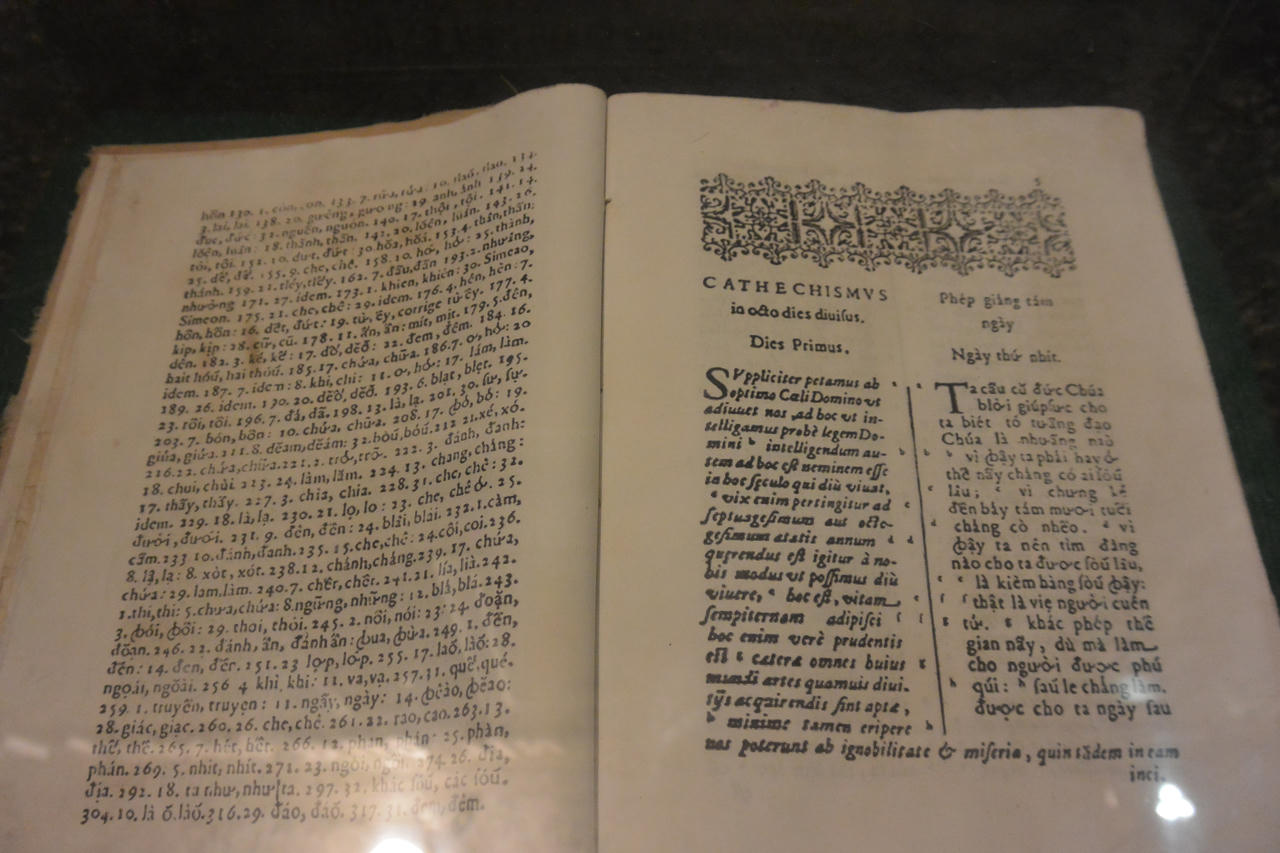 hôn 130. 1. còn, con. 133. 7. rửa, 10. 134.
3. lai, lại. 138. 20. gương: 19. anh, ảnh 139. 24.
đuc, đức: 31. nguên, nguồn. 140. 17. thôi, tôi. 141. 14.
lôên, luân: 18. thánh, thần. 142. 20. lôên, luân. 143. 26.
tòi, tôi. 152. 10. dưt, đứt: 30. hỏa, hoá. 153. 4. thân, thần:
25. dế, để. 155. 9. che, chê. 158. 10. hơ, hở: 25. thành,
thánh. 159. 21. tiếy, tiếy. 162. 7. đấu, đấn 193. 2. nhưảng,
nhường 171. 27. idem. 173. 1. khien, khién: 30. Simeao,
Simeon. 175. 21. che, chê: 29. idem. 176. 4. hén, hèn: 7.
hôn, hồn: 16. dết, đứt: 19. từ, ếy, corrige từ ếy. 177. 4.
kip, kịp: 28. cữ, cũ. 178. 11. ấn, ẩn: mít, mịt. 179. 5. đén,
dên. 182. 3. ké, kẻ: 17. đờ, dẽŏ: 22. đem, đêm. 184. 16.
bait hóú, hai thóú. 185. 17. chứa, chữa. 186. 7. ơ, hở: 20
idem. 187. 7. iden: 8. khi, chi: 11. ơ, hở: 17. lám, làm.
189. 26. idem. 190. 20. dẽŏ, dẽŏ. 193. 6. blat, blẹt. 195.
23. rối, tôi. 196. 7. đá, dã. 198. 13. là, lạ. 201. 30. sư, sự.
203. 7. bón, bôn: 10. chửa, chứa. 208. 17. ꞗỏ, bỏ: 19.
giúa, giửa. 211. 8. dẽam, dẽám: 32. bóú, bóú. 212 21. xé, xó.
216. 22. chứa, chữa. 221. 2. trở, trô. 222. 3. đánh, đanh:
18. chui, chủi. 223. 24. làm, lầm. 224. 13. chang, chảng:
17. thấy, thầy. 227. 3. chia, chỉa. 228. 31. che, chê: 32.
idem. 229. 18. là, lạ. 230. 21. lọ, lo: 23. che, chê ở. 25.
đưới, dưới. 231. 9. đên, đến: 24. blải, blai. 232. 1. cảm,
cấm. 233 10. đánh, đanh. 235. 15. che, chê: 24. côi, coi. 236.
8. lả, lạ: 8. xòt, xót. 238. 12. chánh, chảng. 239. 17. chứa,
chửa: 29. lam, làm. 240. 7. chêt, chết. 241. 21. lía, lìa. 242.
1. thi, thì: 5. chưa, chứa: 8. ngững, những: 12. blả, blá. 243.
3. ꞗói, ꞗôi: 29. thoi, thỏi. 245. 2. nôi, nói: 23: 24. đoạn,
đŏạn. 246. 22. đánh, ấn, đánhấn: ꞗua, ꞗửa. 249. 1. đên,
đến: 14. đen, đến. 251. 23 lợp, lớp. 255. 17. laŏ, làŏ: 28.
ngoại, ngŏài. 256 4 khỉ, khi: 11. va, vạ. 257. 31. quê, qué.
259. 1. truyên, truyện: 11. ngấy, ngày: 14. ꞗẽào, ꞗẽào:
28. giác, giạc. 260. 26. che, chê. 261. 22. rao, cao. 263. 13.
thế, thề. 265. 7. hét, hết. 266. 12. phan, phán: 25. phàn,
phán. 269. 5. nhit, nhít. 271. 23. ngòi, ngôi 274. 26. địa,
địa. 292. 18. ta như, như ta. 297. 32. khác sóú, các sóú.
304. 10. là ố. làŏ. 316. 29. đáo, đáŏ. 317. 31. đem, đêm.
5
CATHECHISMVS
in octo dies diuisus.
Dies Primus.
SVppliciter petamus ab
Optimo Cæli Domino vt
adiuuet nos, ad hoc vt in-
telligamus probè legem Do-
mini ᵇ intelligendum au-
tem ad hoc est neminem esse
in hoc sęculo qui diù viuat,
ᶜ vix enim pertingitur ad
septuagesimum aut octo-
gesimum ætatis annum
querendus est igitur à no-
bis modus vt possimus diù
viuere, ᵉ hoc est, vitam
sempiternam adipisci
hoc enim verè prudentis
est ᵍ cæteræ omnes huius
mundi artes quamuis diui-
tijs acquirendis sint aptæ,
ʰ minime tamen eripere
nos poterunt ab ignobilitate & miseria, quin tãdem in eam
inci.
Phép giảng tám
ngày
Ngày thứ nhít.
Ta cầu cŭ đức Chúa
blời giúpsức cho
ta biét tỏ tưầng đạo
Chúa là nhưầng nào
ᵇ vì ꞗậy ta phải hay ở
thế nầy chảng có ai sốú
lâu; ᶜ vì chưng kẻ
đến bảy tám mươi tuổi
chảng cò nhèo. ᵈ vì
ꞗậy ta nên tìm đàng
nào cho ta được sốú lâu,
ᵉ là kiếm hàng sốú ꞗậy:
ᶠ thật là viẹ người cuên
tử. ᵍ khác phép thế
gian nầy, dù mà làm
cho người được phú
qúi: ʰ saú le chảng làm.
được cho ta ngày sau